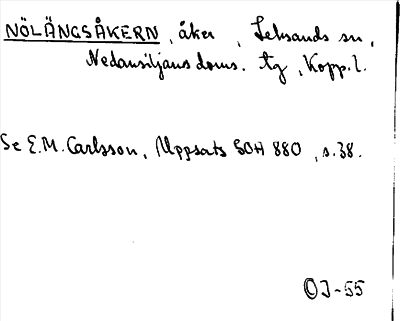 NÖLÄNGSÅKERN, åker, Leksands sn,
Nedansiljans doms. tg, Kopp. l.
Se E.M. Carlsson, Uppsats SOH 880, s. 38.
OJ-55